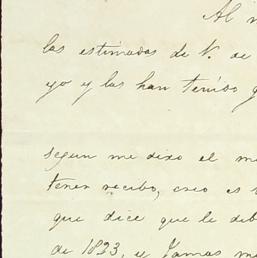 Al
las estimadas de V. de
yo y las han tenido
segun me dixo el
tener recibo, creo es
que dice que le deb
de 1823, y Jamas